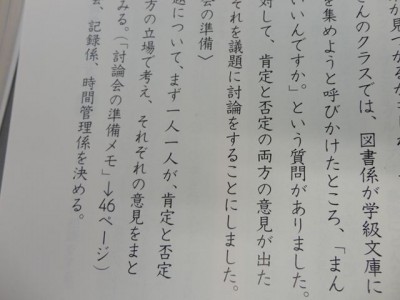 さんのクラスでは、図書係が学級文庫に
を集めようと呼びかけたところ、「まん
いいんですか」という質問がありました。
対して、肯定と否定の両方の意見が出た
それを議題に討論をすることにしました。
会の準備〉
題について、まず一人一人が、肯定と否定
方の立場で考え、それぞれの意見をまと
みる。(「討論会の準備メモ」→46ページ)
、記録係、時間管理係を決める。